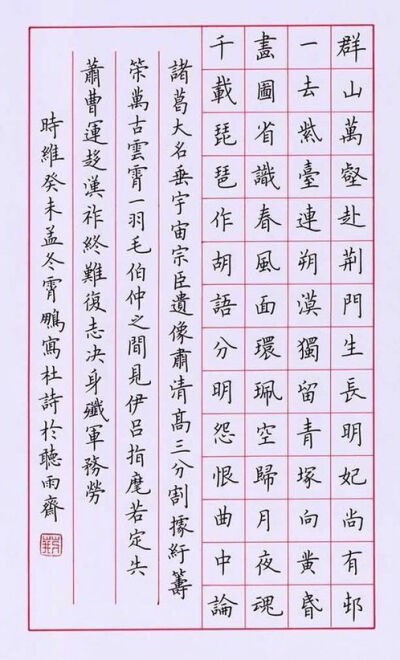 群山萬壑赴荆門生長明妃尚有邨
一去紫臺連朔漠獨留青塚向黄昏
畫圖省識春風面環珮空歸月夜魂
千載琵琶作胡語分明怨恨曲中論
諸葛大名垂宇宙宗臣遺像肅清髙三分割據紆籌
筞萬古雲霄一羽毛伯仲之間見伊吕指麾若定失
蕭曹運趍漢祚終難復志决身殲軍務勞
時維癸未孟冬霄鵬寫杜詩於聽雨齋